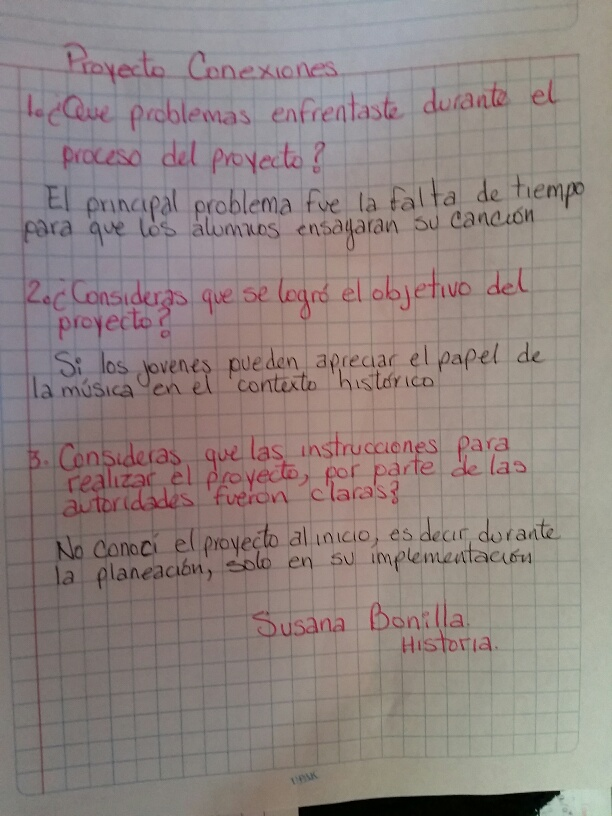 Proyecto Conexiones
1.¿Que problemas enfrentaste durante el
proceso del proyecto?
El principal problema fue la falta de tiempo
para que los alumnos ensayaran su canción
2.¿Consideras que se logró el objetivo del
proyecto?
Si los jovenes pueden apreciar el papel de
la música en el contexto histórico
3. Consideras que las instrucciones para
realizar el proyecto, por parte de las
autoridades fueron claras?
No conocí el proyecto al inicio, es decir durante
la planeación, solo en su implementación
Susana Bonilla.
Historia.